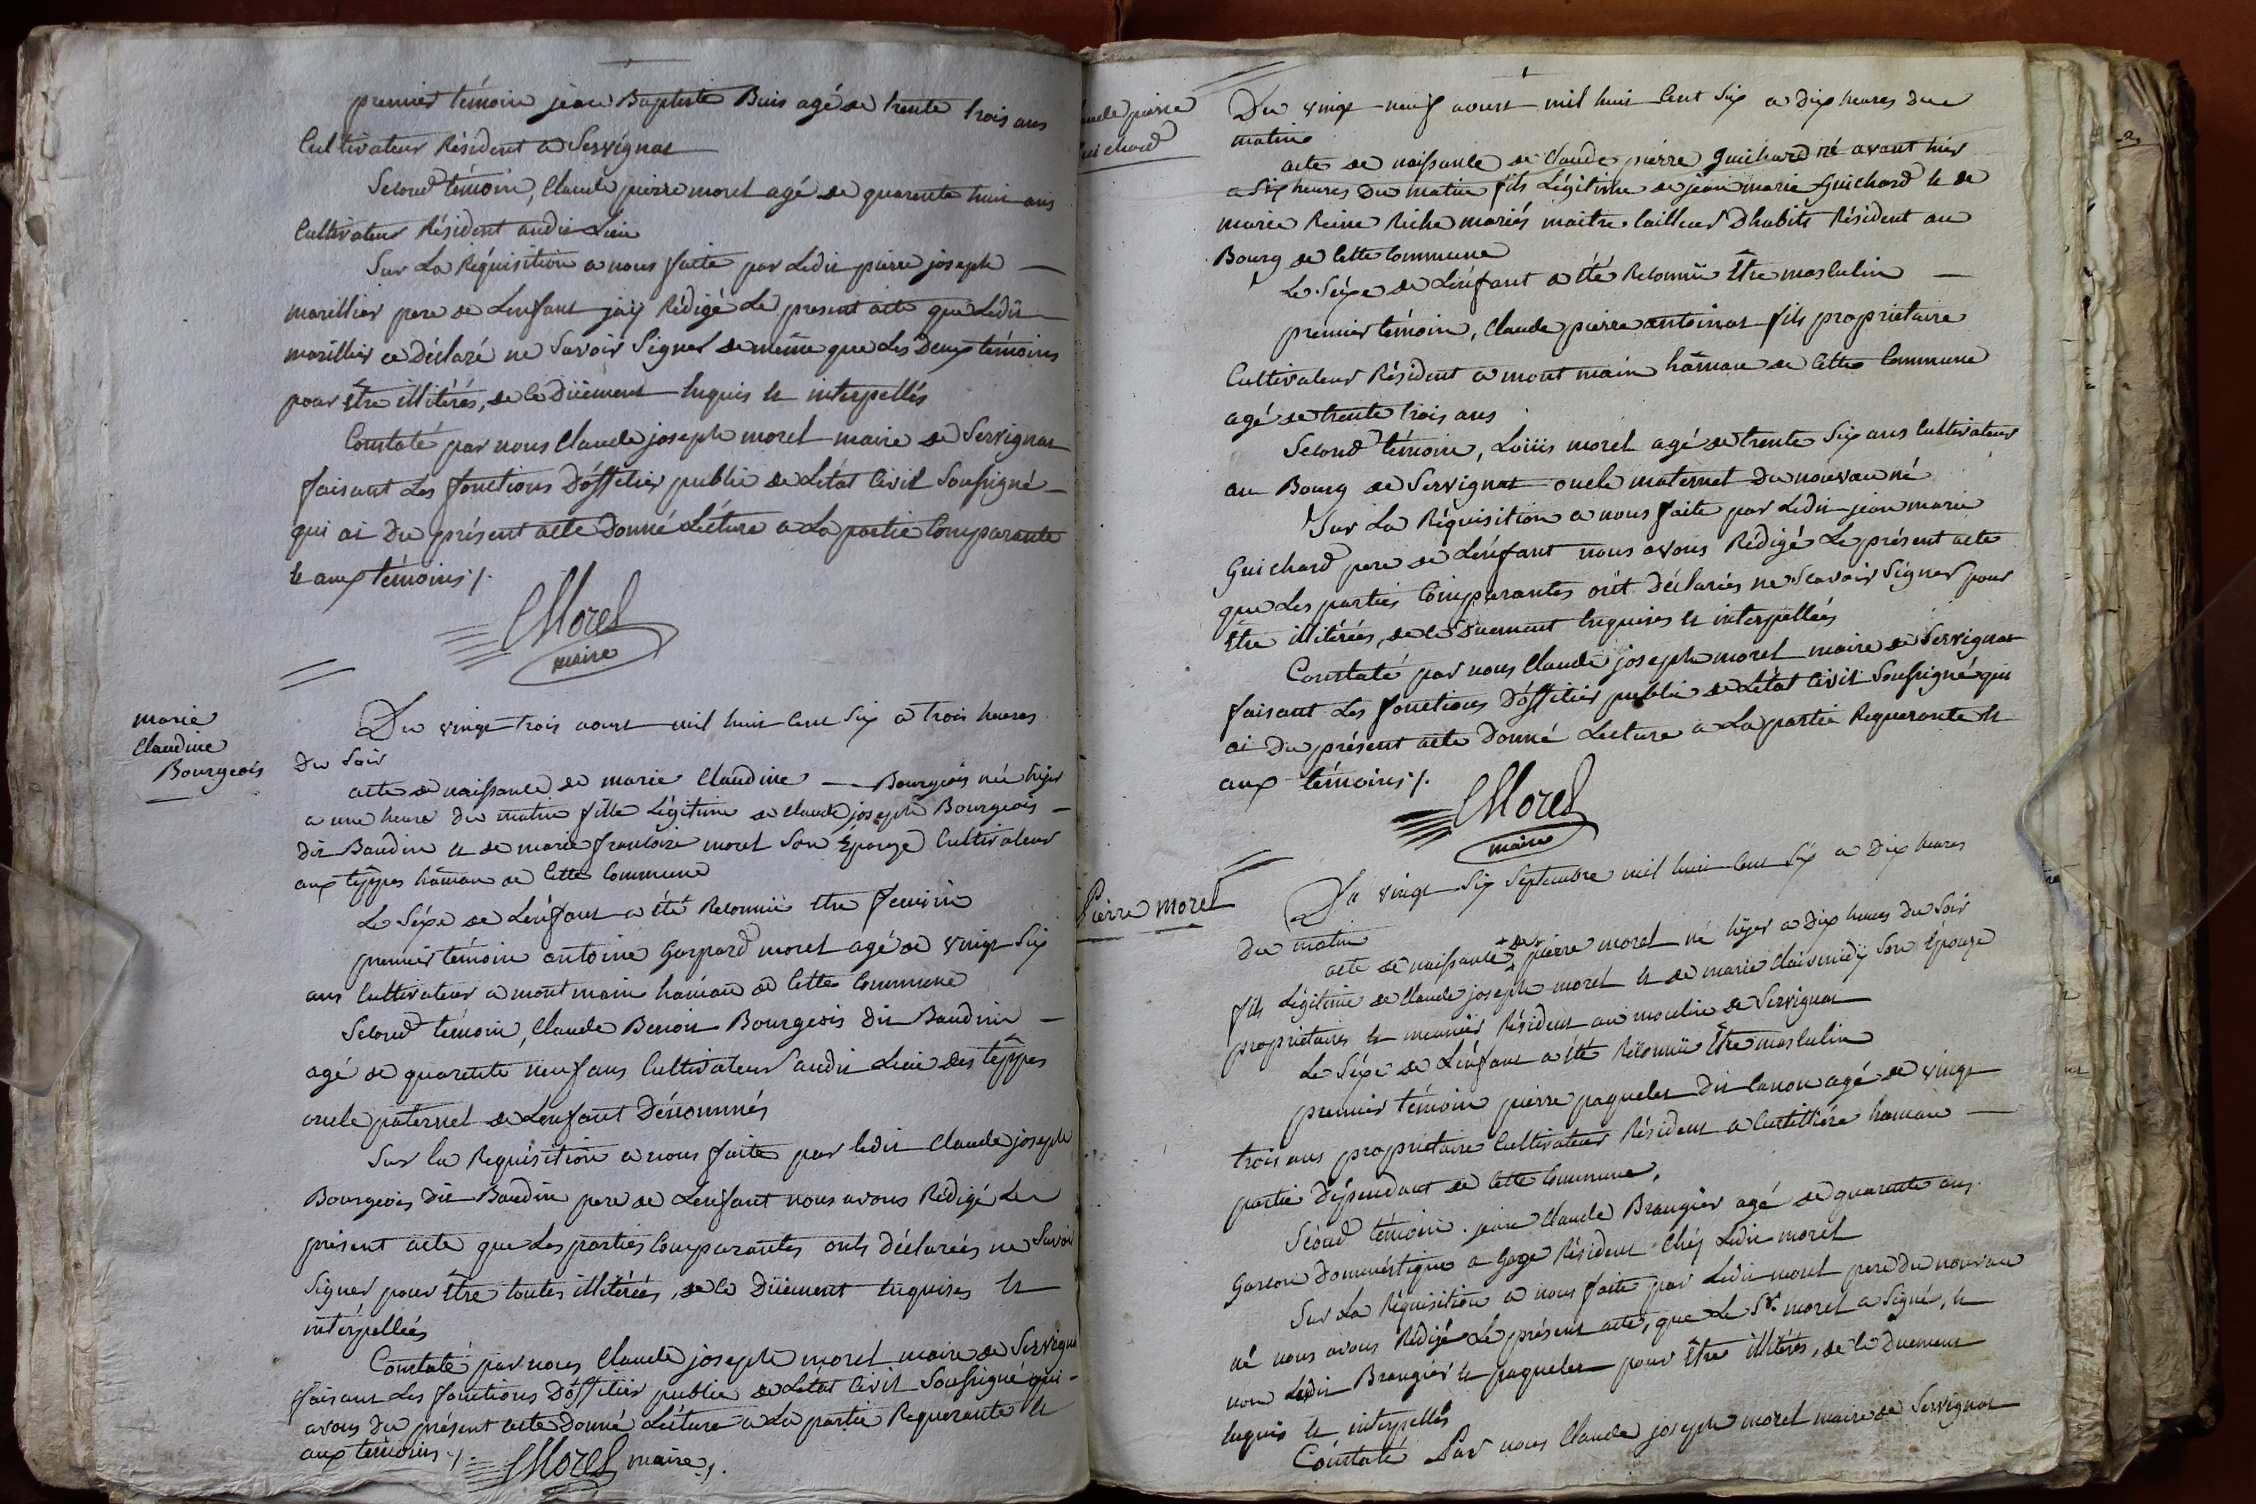 premier témoin jean Baptiste Buis agé de trente trois ans
Cultivateur Résident a Servignat
Second témoin, Claude pierre morel agé de quarente huit ans
Cultivateur Résident audit Lieu
Sur La Réquisition a nous faite par Ledit pierre joseph
marillier pere de Lenfant jay Rédigé Le present acte que Ledit
marillier a Déclaré ne Savoir Signer de même que Les Deux témoins
pour être illitérés, de ce Düement Enquis et interpellés
Constaté par nous Claude joseph morel maire de Servignat
faisant Les fonctions D'officier public de Létat Civil Soussigné
qui ai Du présent acte Donné Lécture a La partie Comparante
et aux témoins ;/.
CMorel
maire
marie
Claudine
Bourgeois
Du vingt trois aoust mil huit Cent Six a trois heures
Du Soir
acte de naissance de marie Claudine Bourgeois née hyer
a une heure du matin fille Légitime de Claude joseph Bourgeois
dit Baudin et de marie francoise morel Son Épouse Cultivateur
aux têppes hamau de Cette Commune
Le Séxe de Lenfant a été Reconnü être feminin
premier témoin antoine Gaspard morel agé de vingt Six
ans Cultivateur a montmain hamau de Cette Commune
Second témoin, Claude Benoit Bourgeois dit Baudin
agé de quarente neuf ans Cultivateur audit Lieu des têppes
oncle paternel de Lenfant Dénommés
Sur La Requisition a nous faite par ledit Claude joseph
Bourgeois dit Baudin pere de Lenfant nous avons Rédigé Le
présent acte que Les parties Comparantes onts déclarées ne Savoir
Signer pour être toutes illitérées, de ce Düement Enquises et
intérpellées
Constaté par nous Claude joseph morel maire de Servignat
faisant Les fonctions D'officier public de Létat Civil Soussigné qui
avons du présent acte donné Lécture a La partie Requerante et
aux témoins ./.
CMorel maire ./.
Claude pierre
Guichard
Du vingt neuf aoust mil huit Cent Six a Dix heures du
matin
acte de naissance de Claude pierre guichard né avant hier
a Six heures Du matin fils Légitime de jean marie Guichard et de
marie Reine Riche mariés maitre tailleur Dhabits Résident au
Bourg de Cette Commune
Le Séxe de Lénfant a été Reconnü être masculin
premier témoin, Claude pierre antoinat fils propriétaire
Cultivateur Résident a mont main hamau de Cette Commune
agé de trente trois ans
Second témoin, Loüis morel agé de trente Six ans Cultivateur
au Bourg de Servignat oncle maternel du nouvau né
Sur La Réquisition a nous faite par Ledit jean marie
Guichard pere de Lénfant nous avons Rédigé Le présent acte
que Les parties Comparantes ont Déclariés ne Scavoir Signer pour
être illitérées, de ce Düement Enquises et interpellées
Constaté par nous Claude joseph morel maire de Servignat
faisant Les fonctions D'officier public de Létat Civil Soussigné qui
ai Du présent acte Donné Lecture a La partie Requerante et
aux témoins ;/.
CMorel
maire
Pierre Morel
Du vingt Six Septembre mil huit Cent Six a Dix heures
du matin
acte de naissance de pierre morel né hyer a dix heures du Soir
fils Légitime de Claude joseph morel et de marie Clairmidy Son Épouse
propriétaires et meunier Résident au moulin de Servignat
Le Séxe de Lénfant a été Réconnü être masculin
premier témoin pierre paquelet dit Canon agé de vingt
trois ans propriétaire Cultivateur Résident a Curtillière hamau
partie dépendant de Cette Commune,
Sécond témoin jean Claude Brangier agé de quarente ans
Garcon Domméstique a Gage Résident Chéz Ledit morel
Sur La Réquisition a nous faite par Ledit morel pere du nouvau
né nous avons Rédigé Le présent acte, que Le Sr. morel a Signé, et
non Ledit Brangier et paquelet pour être illitérés, de ce duement
Enquis et interpellés
Constaté Par nous Claude joseph morel maire de Servignat